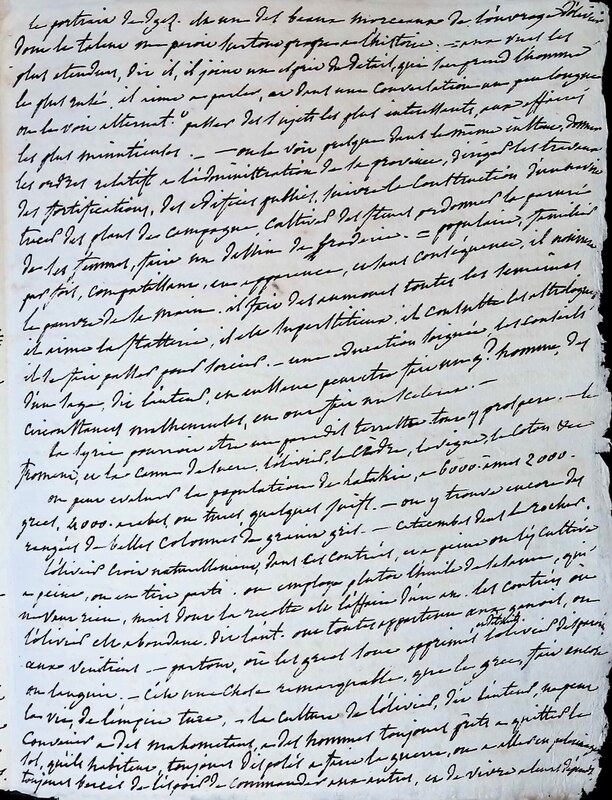 le portrait de Dgez. est un des beaux morceaux de l'ouvrage
dont le talent me paroit surtout propre a l'histoire. = aux vues les
plus etendues, dit il, il joint un esprit de detail, qui surprend l'homme
le plus rusé, il aime a parler, et dans une conversation un peu longue
on le voit alternat.t passer des sujets les plus interessants, aux affaires
les plus minutieuses. — on le voit quelque dans le même instant, donner
les ordres relatifs a l'administration de la province, diriger les travaux
des fortifications, des edifices publics, suivre la construction d'un navire
tracer des plans de campagne, cultiver des fleurs ordonner la parure
de ses femmes, faire un dessin de broderie. = populaire, familier
par fois, compatissant, en apparence, et sans consequence, il nourrit
le pauvre de sa main. il fait des aumones toutes les semaines
il aime la flatterie, il est superstitieux, il consulte les astrologues
il se fait passer pour sorcier. — une education soignée, les conseils
d'un sage, dit l'auteur, en eussent peut etre fait un g.d homme, des
circonstances malheureuses, en ont fait un scelerat. —
la syrie pourroit etre un paradis terrestre tout y prospere. — le
froment, et la canne de sucre, l'olivier, le cèdre, la vigne, le coton &c
on peut evaluer la population de latakié, a 6000 ames 2000.
grecs, 4000. arabes, ou turcs quelques juifs. — on y trouve encore des
rangées de belles colonnes de granit gris. — catacombes dans le rocher,
l'olivier croit naturellement, dans ces contrées, et a peine on l'y cultive
a peine, on en tire parti. on employe plutot l'huile de sesame, qui
ne vaut rien, mais dont la recolte est l'affaire d'un an. les contrées où
l'olivier est abondant. dit l'aut. ont toutes appartenu aux genois, ou
aux venitiens — partout, où les grecs sont opprimés l'olivier disparoit
ou languit. — c'est une chose remarquable, que le grec, fait encore
la vie de l'empire turc, — la culture de l'olivier, dit l'auteur, ne peut
convenir a des mahometans, a des hommes toujours prets a quitter le
sol, qu'ils habitent, toujours disposés a faire la guerre, ou a aller en
toujours bercés de l'espoir de commander aux autres, et de vivre a leurs dépens